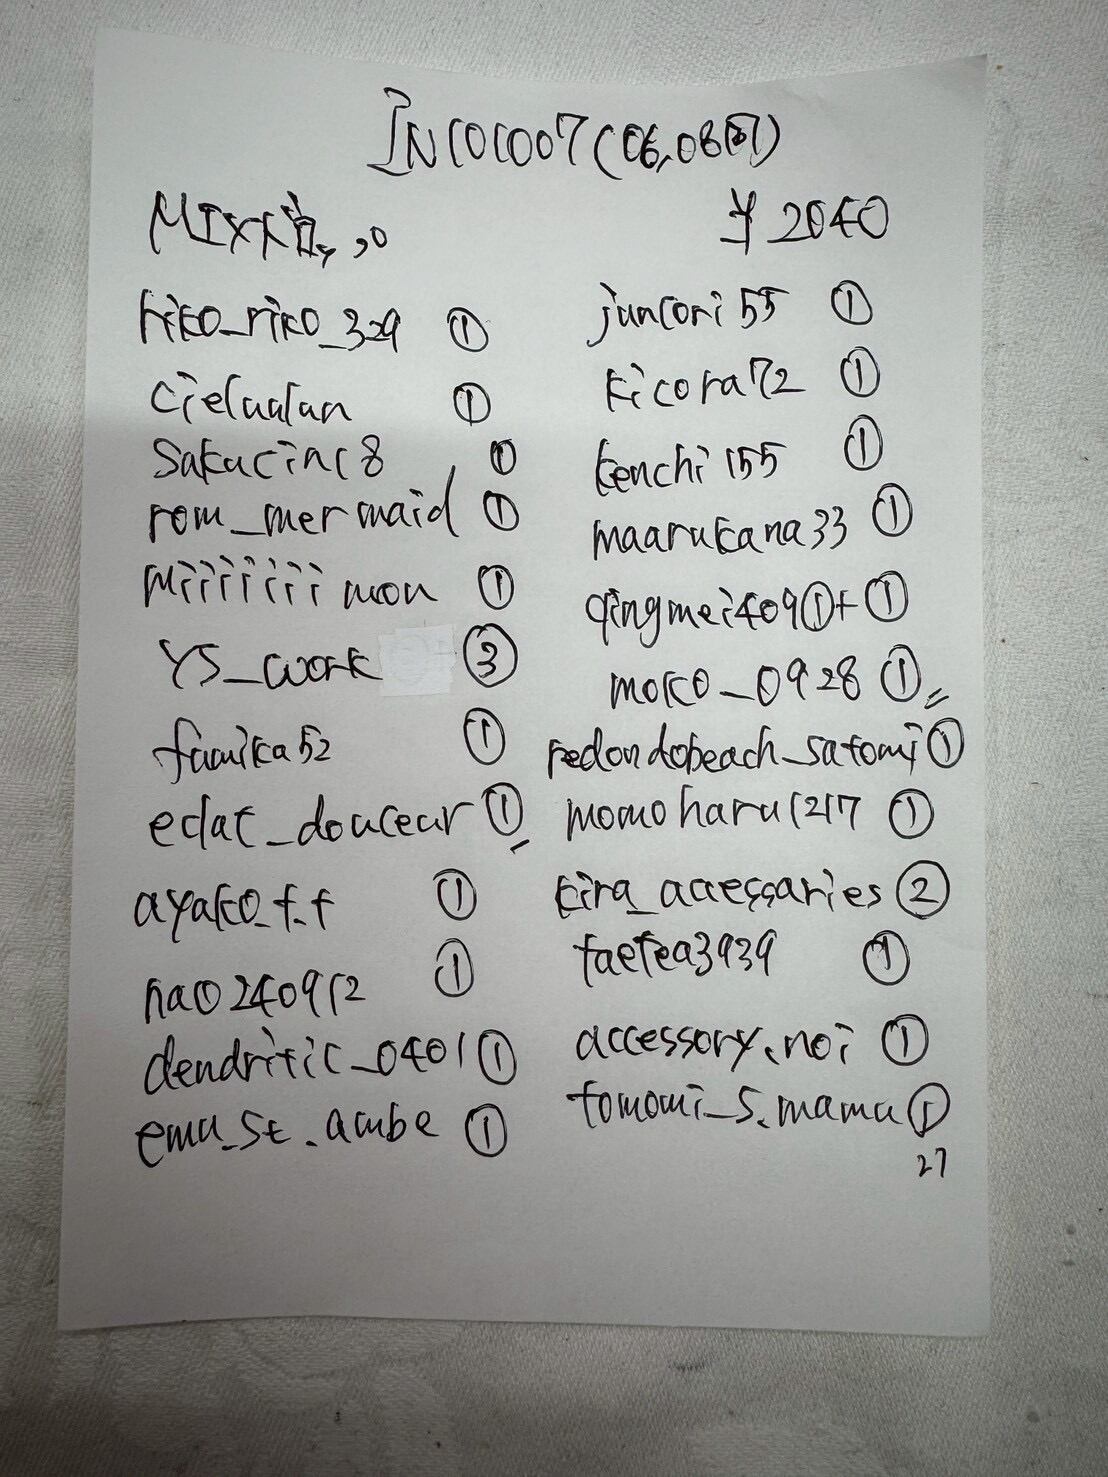 INC01007(06,08的)
MIX大直, 10 ¥2040
riko_riko_329 ①
cielualun ①
sakucinc8 ①
rom_mermaid ①
miiiiiii mon ①
YS_work ③
fumika52 ①
eclat_douceur ①
ayako_f.f ①
nao240912 ①
dendritic_0401 ①
emu_st.ambe ①
juncori55 ①
kicora72 ①
kenchi155 ①
maarukana33 ①
qingmei409①+①
moko_0928 ①
redondobeach_satomi①
momoharu1217 ①
kira_accessaries ②
taetea3939 ①
accessory.noi ①
tomomi_s.mama①
27